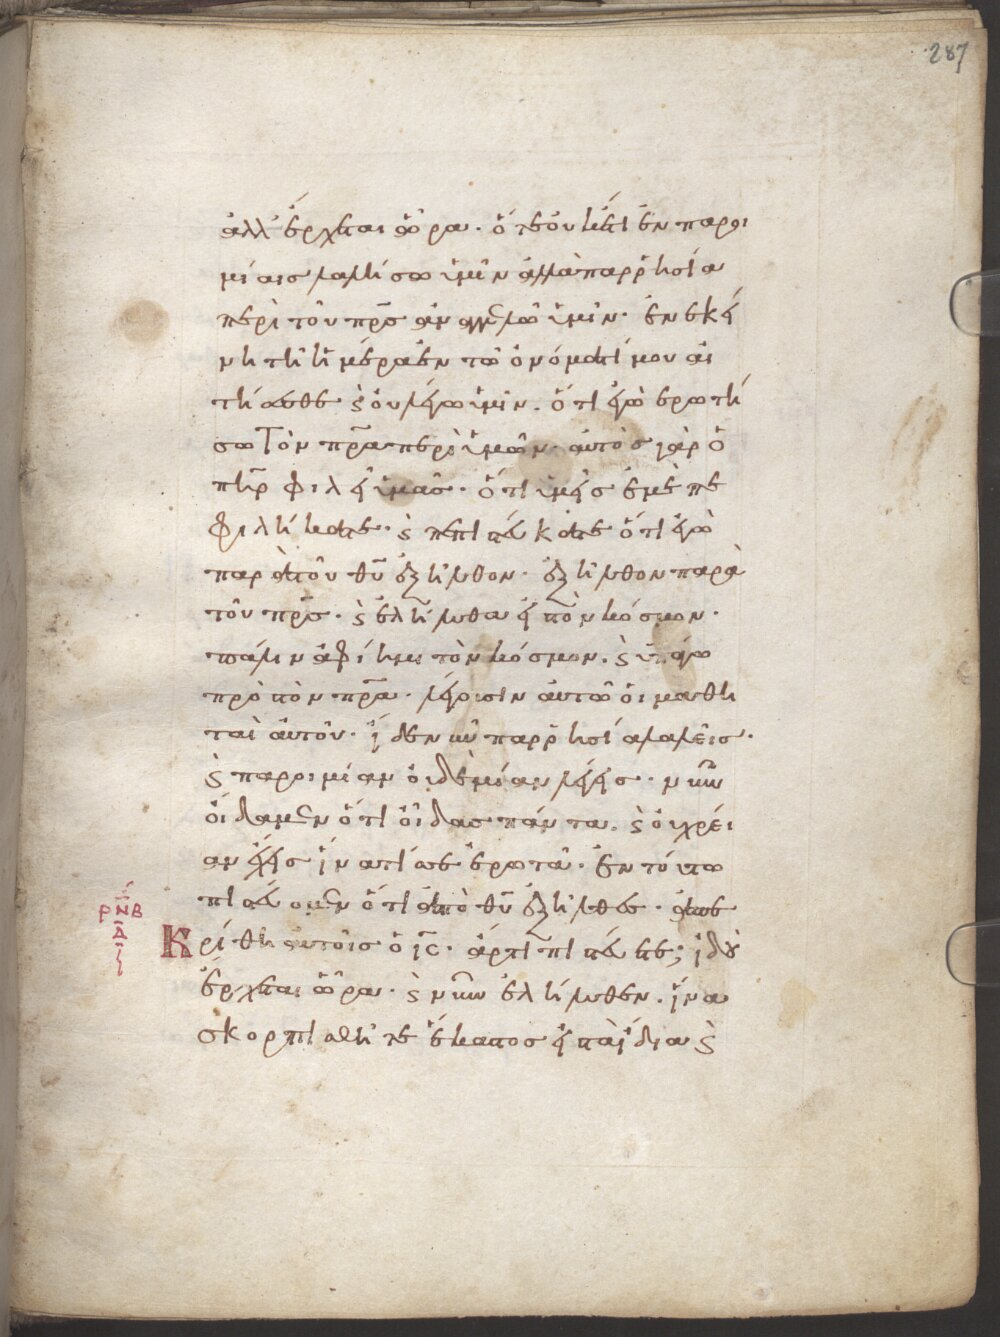 287
ἀλλ' ἔρχεται ὥρα· ὅτε οὐκέτι ἐν παροι
μίαις λαλήσω ὑμῖν ἀλλὰ παρρησία
περὶ τοῦ πρς ἀναγγελῶ ὑμῖν· ἐν ἐκεί
νη τῆ ἡμέρα ἐν τῶ ὀνόματί μου αἰ
τήσεσθε ϗ οὐ λέγω ὑμῖν· ὅτι ἐγὼ ἐρωτή
σω τὸν πρα περὶ ὑμῶν· αὐτὸς γὰρ ὁ
πηρ φιλεῖ ὑμᾶς· ὅτι ὑμεῖς ἐμὲ πε
φιλήκατε· ϗ πεπιστεύκατε ὅτι ἐγὼ
παρὰ τοῦ θυ ἐξῆλθον· ἐξῆλθον παρὰ
τοῦ πρς· ϗ ἐλήλυθα εἰς τὸν κόσμον·
πάλιν ἀφίημι τὸν κόσμον· ϗ ὑπάγω
πρὸς τὸν πρα· λέγουσιν αὐτῶ οἱ μαθη
ταὶ αὐτοῦ· ἴδε νῦν παρρησία λαλεῖς·
ϗ παροιμίαν οὐδεμίαν λέγεις· νῦν
οἴδαμεν ὅτι οἶδας πάντα· ϗ οὐ χρεί
αν ἔχεις ἵνα τίς σε ἐρωτᾶ· ἐν τούτω
πιστεύομεν ὅτι ἀπὸ θυ ἐξῆλθες· ἀπε
ρνβ
δ
ι
Κρίθη αὐτοῖς ὁ ις· ἄρτι πιστεύετε; ἰδοὺ
ἔρχεται ὥρα· ϗ νῦν ἐλήλυθεν· ἵνα
σκορπισθῆτε ἕκαστος εἰς τὰ ἴδια ϗ